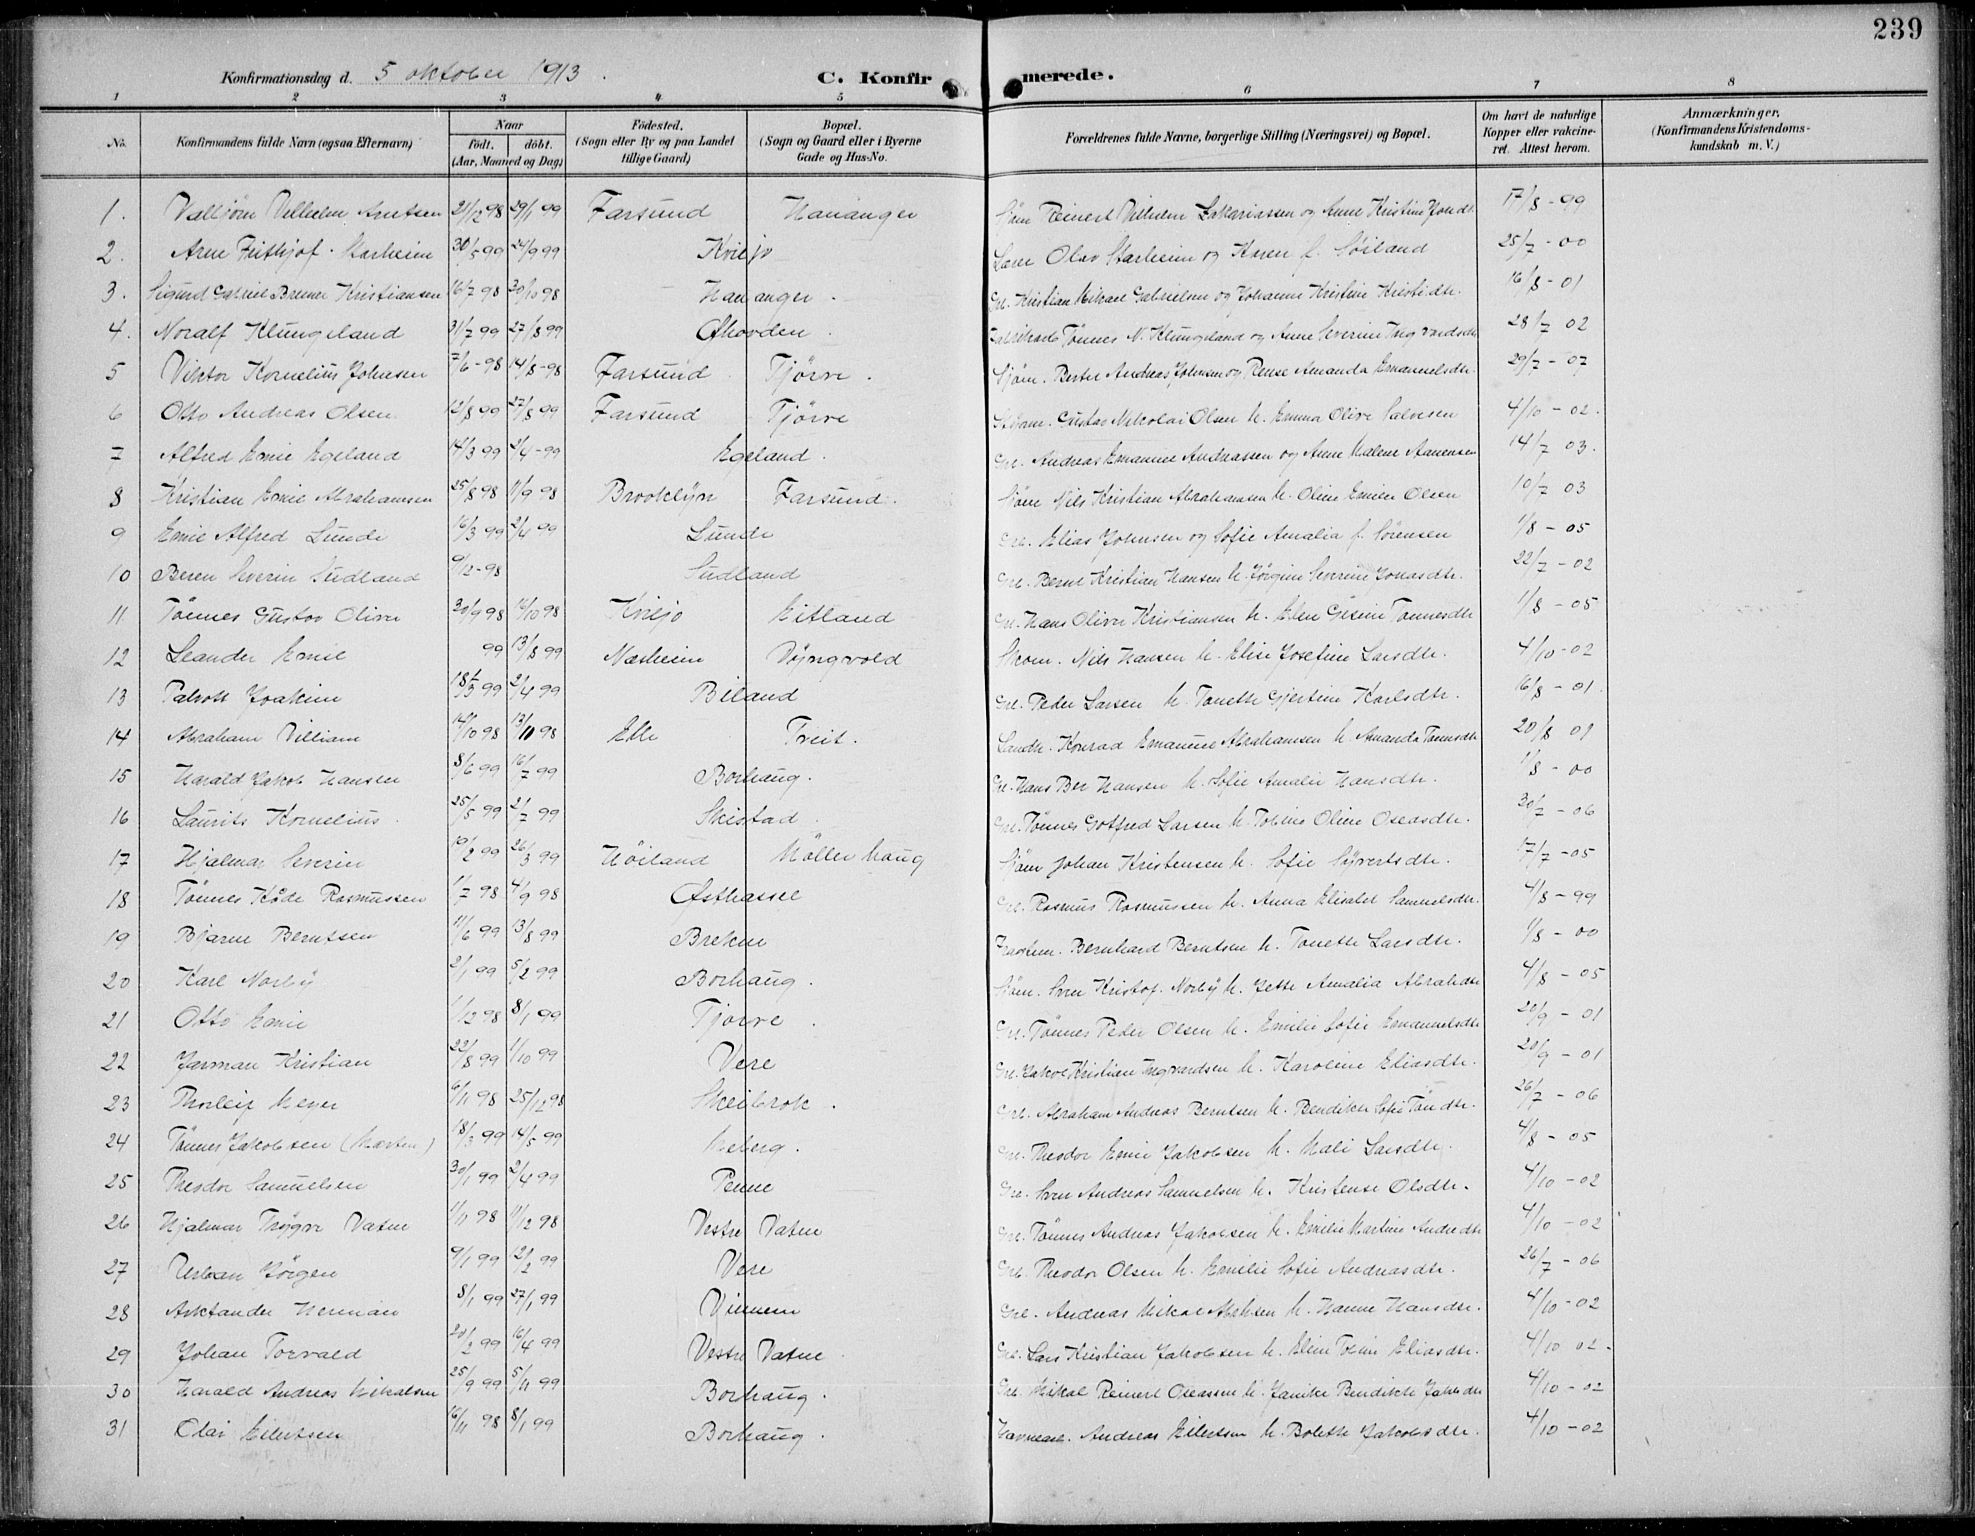 239
Konfirmationsdag d. 5 oktober 1913. C. Konfirmerede.
1 2 3 4 5 6 7 8
No. Konfirmandens fulde Navn (ogsaa Efternavn) Naar født. døbt. (Aar, Maaned og Dag) Fødested. (Sogn eller By og paa Landet tillige Gaard) Bopæl. (Sogn og Gaard eller i Byerne Gade og Hus-No. Forældrenes fulde Navne, borgerlige Stilling (Næringsvei) og Bopæl. Om havt de naturlige Kopper eller vakcineret. Attest herom. Anmærkninger. (Konfirmandens Kristendomskundskab m. V.)
1. Valbjørn Vilhelm Arntsen 21/12 98 29/1 99 Farsund Hananger Sjøm Reinert Vilhelm Zakariassen og Anne Kristine 17/8-99
2. Arne Frithjof Starheim 30/5 99 24/9 99 Kviljo Lærer Olav Starheim og Karen f. Søiland 25/7-00
3. Sigurd Gabriel Bremer Kristiansen 16/7 98 30/10 98 Hananger. Grl. Kristian Mikael Gabrielsen og Johanne Kristine Kristidtr. 16/8-01
4. Noralf Klungeland 31/7 99 27/8 99 Tønnes N. Klungeland og Anne Severine Ingvardsdtr 28/7 02
5 Viktor Kornelius Johnsen 7/6-98 14/8-98 Farsund Tjørve. Sjøm. Andreas Johnsen og Amanda Emanuelsdtr. 29/7-07
6 Otto Andreas Olsen 12/8 99 27/8 99 Farsund Tjørve Gustav Nikolai Olsen h. Emma Olive Salvesen 4/10-02.
7 Alfred Emil Egeland 14/3 99 2/4-99 Egeland. Grl. Andreas Emanuel Andreassen og Anne Malene Aanensen 14/7 03.
8 Kristian Emil Abrahamsen 25/8 98 11/9 98 Brooklyn Farsund. Sjøm Nils Kristian Abrahamsen h. Oline Emilie Olsen 10/7 03
9 Emil Alfred Lunde 16/3 99 2/4 99 Lunde Grl. Elias Johnsen og Sofie Amalia f. Sørensen 1/8-05
10 Beren Severin Sudland 9/12-98 Sudland Grl. Bernt Kristian Hansen h. Jørgine Severine Jonasdtr. 22/7-02
11 Tønnes Gustav Oliver 30/9 98 /10 98 Kviljo Eitland Grl. Hans Oliver Kristiansen h. Elen Gesine Tønnesdtr 1/8-05
12 Leander Emil 99 13/8 99 Næsheim Skom. Nils Hansen h. Elise Josefine Larsdtr. 4/10-02
13 Joakim 18/3 99 2/4 99 Biland Grl. Peder Larsen h. Tonette Gjertine Karlsdtr. 16/8-01.
14 Abraham Villiam 14/10 98 13/11 98 Elle Treit. Landh. Konrad Emanuel Abrahamsen h. Amanda Tønnesdtr 20/8 01
15 Harald Jakob Hansen 8/6 99 16/7 99 Borhaug. Grl. Hans Ber Hansen h. Sofie Amalie Hansdtr. 1/8-00
16 Laurits Kornelius. 25/5 99 2/7 99 Skistad. Grl. Tønnes Gotfred Larsen h. Tobine Oline Oseasdtr. 30/7-06
17 Hjalmar Severin 19/2 99 26/3 99 Høiland Møllerhaug Sjøm Johan Kristensen h. Sofie Syvertsdtr. 17/7-05
18 Tønnes Kåde Rasmussen 1/7 98 4/9 98 Østhassel Grl. Rasmus Rasmussen h. Anna Elisabet Samuelsdtr. 4/8-99
19 Bjarne Berntsen 11/6 99 13/8 99 Brekne Bernhard Berntsen h. Tonette Larsdtr. 1/8-00
20 Karl Norby 2/1 99 5/2 99 Borhaug. Sjøm. Sven Kristof. Norby h. Jette Amalia Abrahdtr 4/8-05
21 Otto Emil 1/12 98 8/1 99 Tjørve. Grl. Tønnes Peder Olsen h. Emilie Sofie Emanuelsdtr 20/9-01
22 Jarman Kristian 22/8 99 1/10 99 Vere Grl. Jakob Kristian Ingvardsen h. Karoline Eliasdtr. 20/9-01
23 Thorleif Meyer 6/11 98 25/12 98 Skeibrok. Grl. Abraham Andreas Berntsen h. Bendikte Sofie Tøndtr. 26/7-06
24 Tønnes Jakobsen (Marten) 18/3 99 14/5 99 Meberg. Grl. Theodor Emil Jakobsen h. Mali Larsdtr. 4/8-05
25 Theodor Samuelsen 30/1 99 2/4 99 Penne Grl. Sven Andreas Samuelsen h. Kristense Olsdtr. 4/10-02
26 Hjalmar Trygve Vatne 1/11 98 11/12 98 Vestre Vatne Grl. Tønnes Andreas Jakobsen h. Emilie Martine Andrdtr 4/10-02
27 Urban Jørgen 9/1 99 12/2 99 Vere Grl. Theodor Olsen h. Emilie Sofie Andreasdtr. 26/7-06
28 Arktander Herman 8/1 99 27/1 99 Vinnem Grl. Andreas Mikal h. Hanne Hansdtr. 4/10-02
29 Johan Torvald 20/2 99 16/4 99 Vestre Vatne Grl. Lars Kristian Jakobsen h. Eline Tobine Eliasdtr. 4/10 02.
30 Harald Andreas Mikalsen 25/9 99 5/11 99 Borhaug. Grl. Mikal Reinert Oseassen h. Janike Bendikte Jakobdtr 4/10-02
31 Olai Eilertsen 16/11 98 8/1 99 Borhaug. Andreas Eilertsen h. Bolette Jakobsdtr. 4/10-02